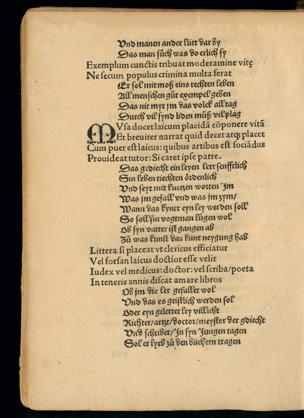 Vnd manen ander lütt dar by
Das man süch was do erlich sy
Exemplum cunctis tribuat moderamine vitę
Ne secum populus crimina multa ferat
Er sol mit moß eins rechten leben
All menschen güt exempel geben
Das nit mit jm das volck all tag
Durch vil sünd liden müß vil plag
MVsa docet laicum placidā cōponere vitā
Et breuiter narrat quid decet atqꝫ placet
Cum puer est laicus: quibus artibus est sociādus
Prouideat tutor: Si caret ipse patre.
Das gedicht ein leyen lert senfftlich
Sin leben riechten ordenlich
Vnd seyt mit kurtzen worten jm
Was jm gefall vnd was jm zym/
Wann das kynt eyn ley werden soll
So soll sin vogtman lügen wol
Ob syn vatter ist gangen ab
Zü was kunst das kint neygung hab
Littera si placeat vt clericus efficiatur
Vel forsan laicus doctior esse velit
Iudex vel medicus: doctor: vel scriba/poeta
In teneris annis discat amare libros
Ob jm die ler gefallet wol
Vnd das es geistlich werden sol
Oder eyn gelerter ley villicht
Richter/artzt/doctor/meyster der gdicht
Vnd schriber/Jn syn jungen tagen
Sol er lyeb zü den büchern tragen